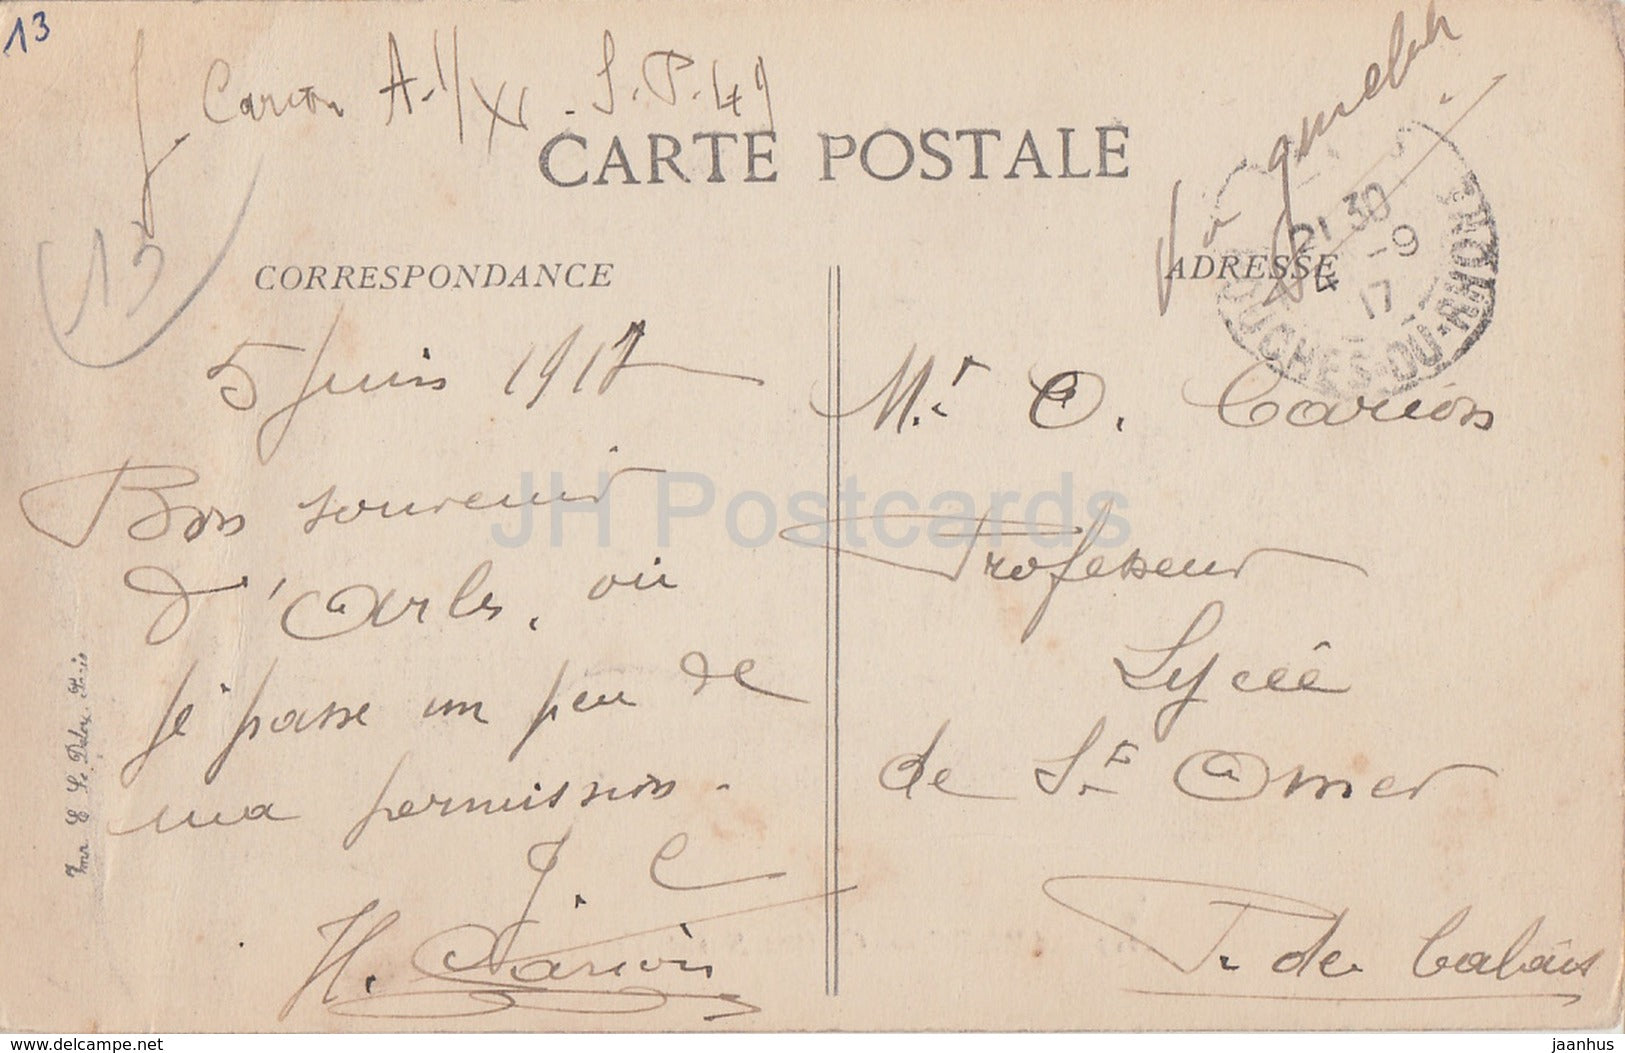 13
J. Carion A.1/XI. S.P.49
CARTE POSTALE
13
CORRESPONDANCE
5 Juin 1917
Bon souvenir
d'Arles, où
je passe un peu de
ma permission.
J. C
H. Carion
ADRESSE
21 30
-9
17
BOUCHES-DU-RHONE
Mr. O. Carion
Professeur
Lycée
de St Omer
P. de Calais
JH Postcards
www.delcampe.net
jaanhus